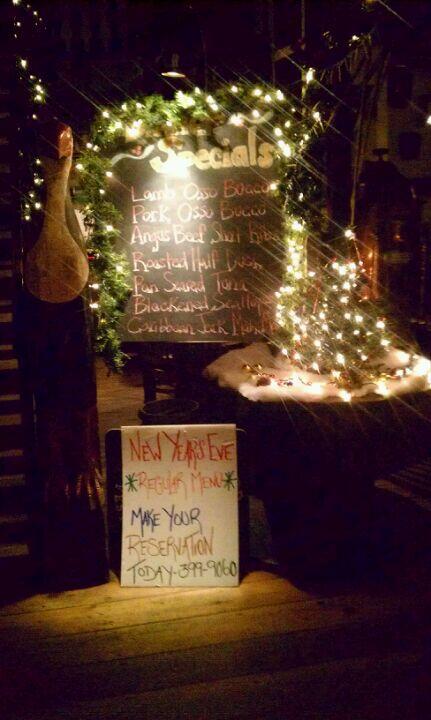 Specials
Lamb Osso Bucco
Pork Osso Bucco
Angus Beef Short Ribs
Roasted Half Duck
Pan Seared Tuna
Blackened Scallops
Caribbean Jerk Mahi
New Year's Eve
*Regular Menu*
Make Your
Reservation
Today-399-9060